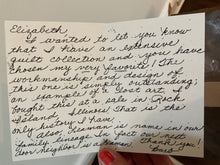 Elizabeth,
I wanted to let you know
that I have an extensive
quilt collection and yours have
chosen my very favorite! The
workmanship and design of
this one is simply outstanding;
an example of a lost art. I
bought this at a sale in Rock
Island, Illinois. That is the
only history I have.
Seaman is name in our
family lineage. In fact our next
door neighbor is a Seaman. Thank you!
Barb